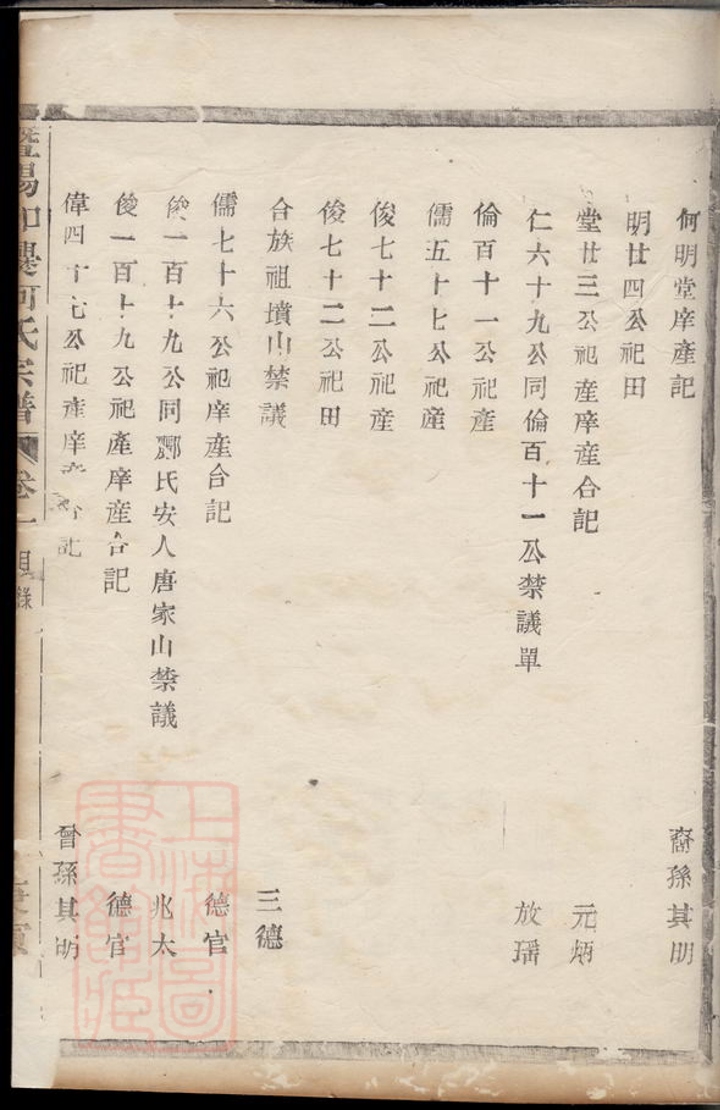 何明堂庠產記 裔孫其明
明廿四公祀田
堂廿三公祀產庠產合記 元炳
仁六十九公同倫百十一公禁議單 放瑶
倫百十一公祀產
儒五十七公祀產
俊七十二公祀產
俊七十二公祀田
合族祖墳山禁議 三德
儒七十六公祀庠產合記 德官
俊一百十九公同酈氏安人唐家山禁議 兆太
俊一百十九公祀產庠產合記 德官
偉四十七公祀產庠產合記 曾孫其明
暨陽 何氏宗譜 卷一 目錄
上海圖書館藏